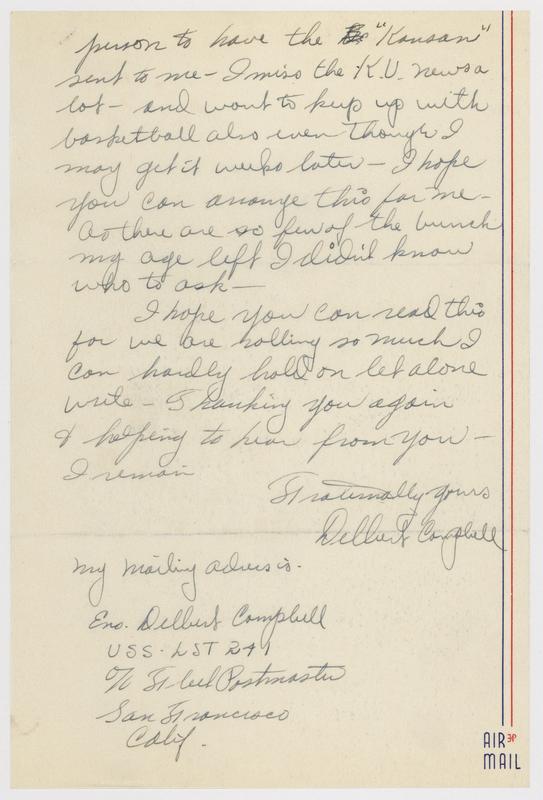 person to have the "Kansan"
sent to me - I miss the K.U. news a
lot - and want to keep up with
basketball also even though I
may get it weeks later - I hope
you can arrange this for me -
As there are so few of the bunch
my age left I didn't know
who to ask -
I hope you can read this
for we are rolling so much I
can hardly hold on let alone
write - Thanking you again
& hoping to hear from you -
I remain
Fraternally yours
Delbert Campbell
My mailing adress is.
Ens. Delbert Campbell
USS. LST 241
c/o Fleet Postmaster
San Francisco
Calif.
AIR
MAIL